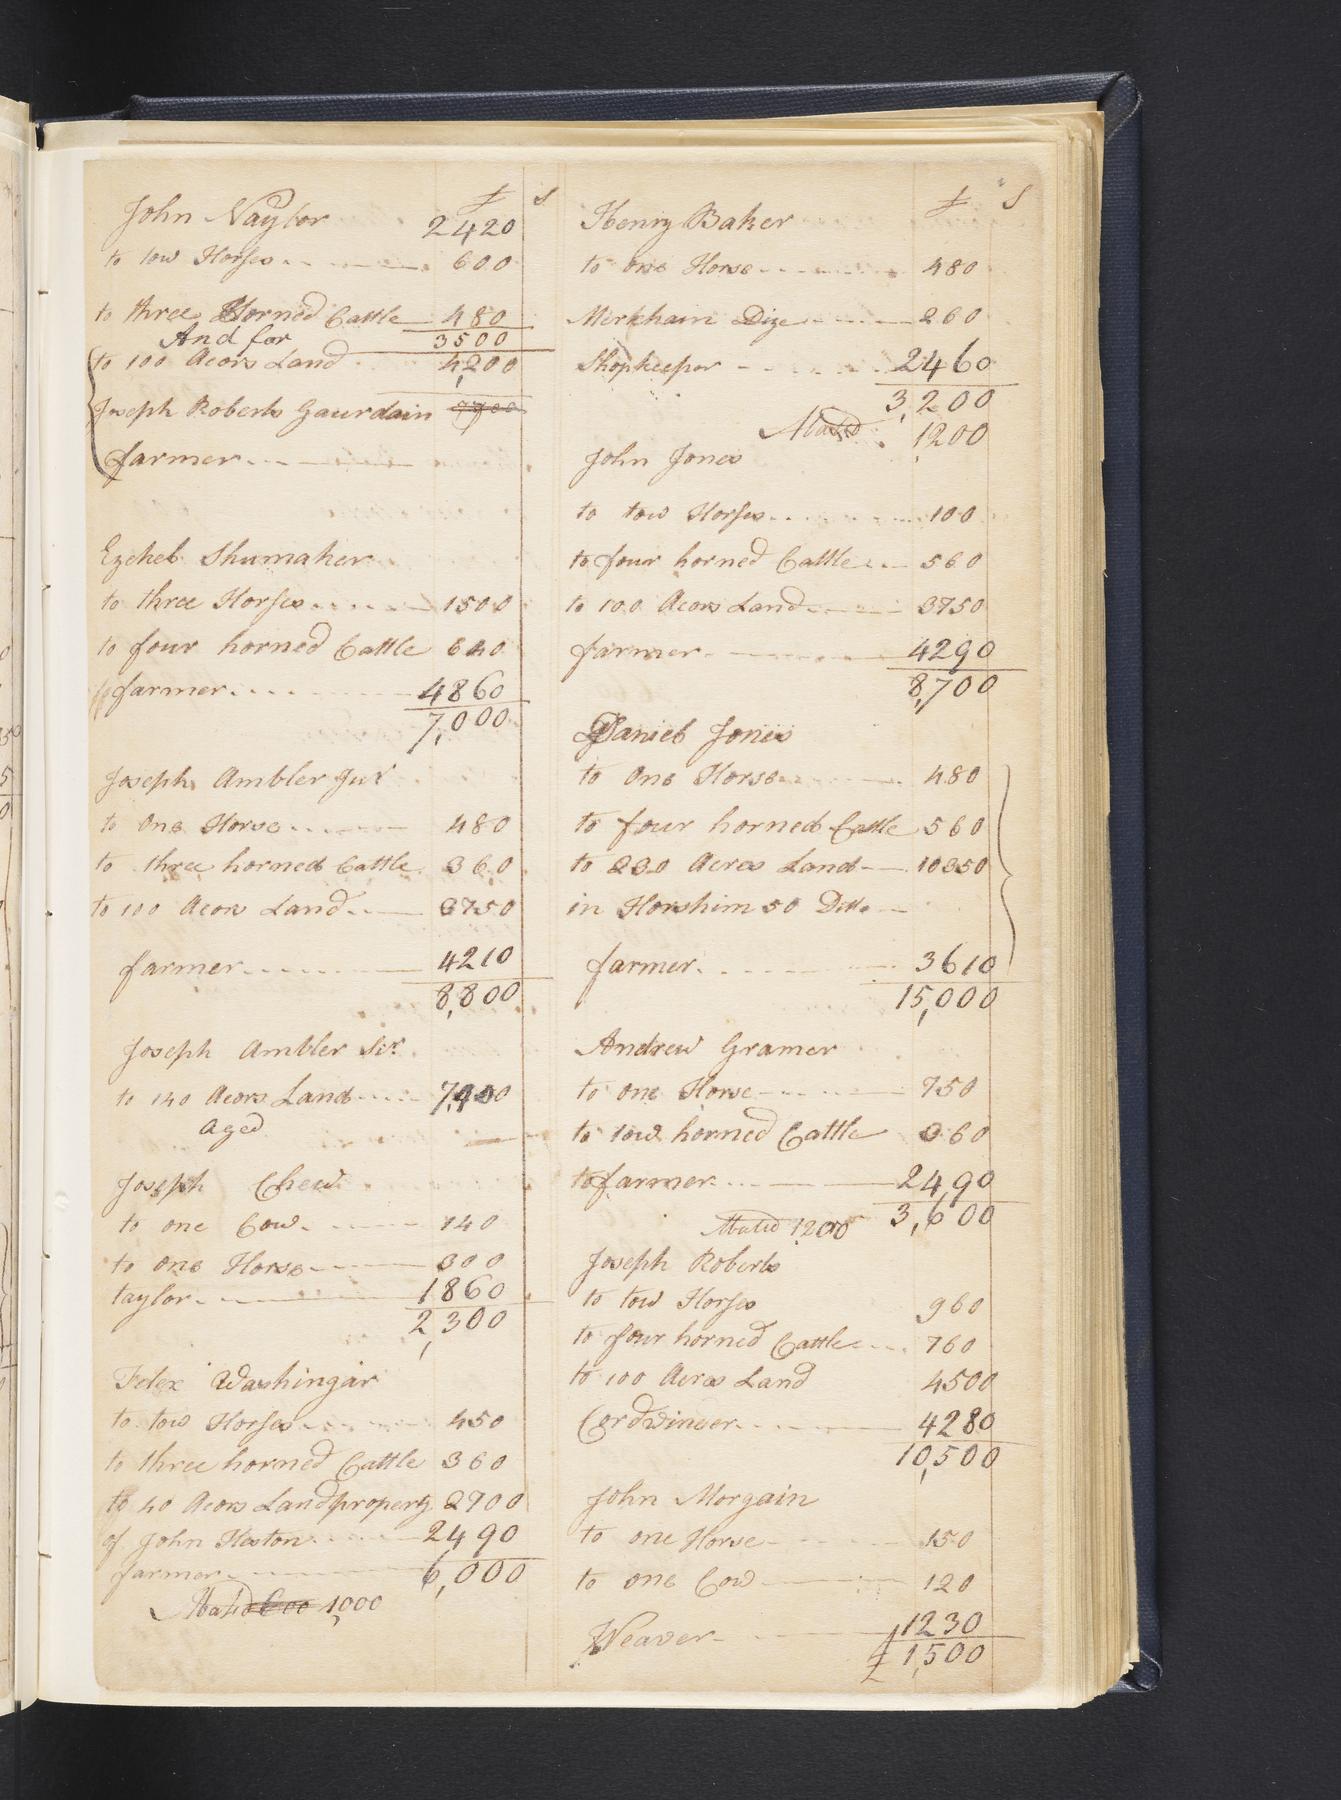 £ s
John Naylor 2420
to tow Horses 600
to three Horned Cattle 480
And for 3500
to 100 Acors Land 4,200
Joseph Roberts Gaurdain
farmer
Ezekel Shumaker
to three Horses 1500
to four horned Cattle 640
farmer 4860
7,000
Joseph Ambler Jur
to one Horse 480
to three horned Cattle 360
to 100 Acors Land 3750
farmer 4210
8,800
Joseph Ambler Sr
to 140 Acors Land
aged
Joseph Chew
to one Cow 140
to one Horse 300
taylor 1860
2,300
Felex Washingair
to tow Horses 450
to three horned Cattle 360
to 40 Acors Land property 2700
of John Heston 2490
farmer 6,000
Abated 1,000
£ s
Henry Baker
to one Horse 480
Merkhain Dize 260
Shopkeeper 2460
3,200
Abated 1200
John Jones
to tow Horses 100
to four horned Cattle 560
to 100 Acors Land 3750
farmer 4290
8,700
Daniel Jones
to one Horse 480
to four horned Cattle 560
to 230 Acres Land 10350
in Horshim 50 Ditto
farmer 3610
15,000
Andrew Gramer
to one Horse 750
to tow horned Cattle 360
to farmer 2490
3,600
Abated 1200
Joseph Roberts
to tow Horses 960
to four horned Cattle 760
to 100 Acres Land 4500
Cordwineer 4280
10,500
John Morgain
to one Horse 150
to one Cow 120
Weaver 1230
£ 1,500